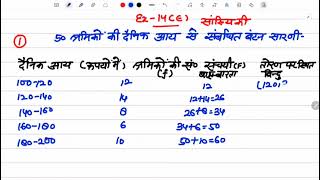 Ex-14(E) सांख्यिकी
① 50 श्रमिकों की दैनिक आय से संबंधित बंटन सारणी-
दैनिक आय (रूपयों में) श्रमिकों की सं० संचयी(F) तोरण पर स्थित
(f) बारंबारता बिन्दु
100-120 12 12 (120,
120-140 14 12+14=26
140-160 8 26+8=34
160-180 6 34+6=50
180-200 10 50+10=60